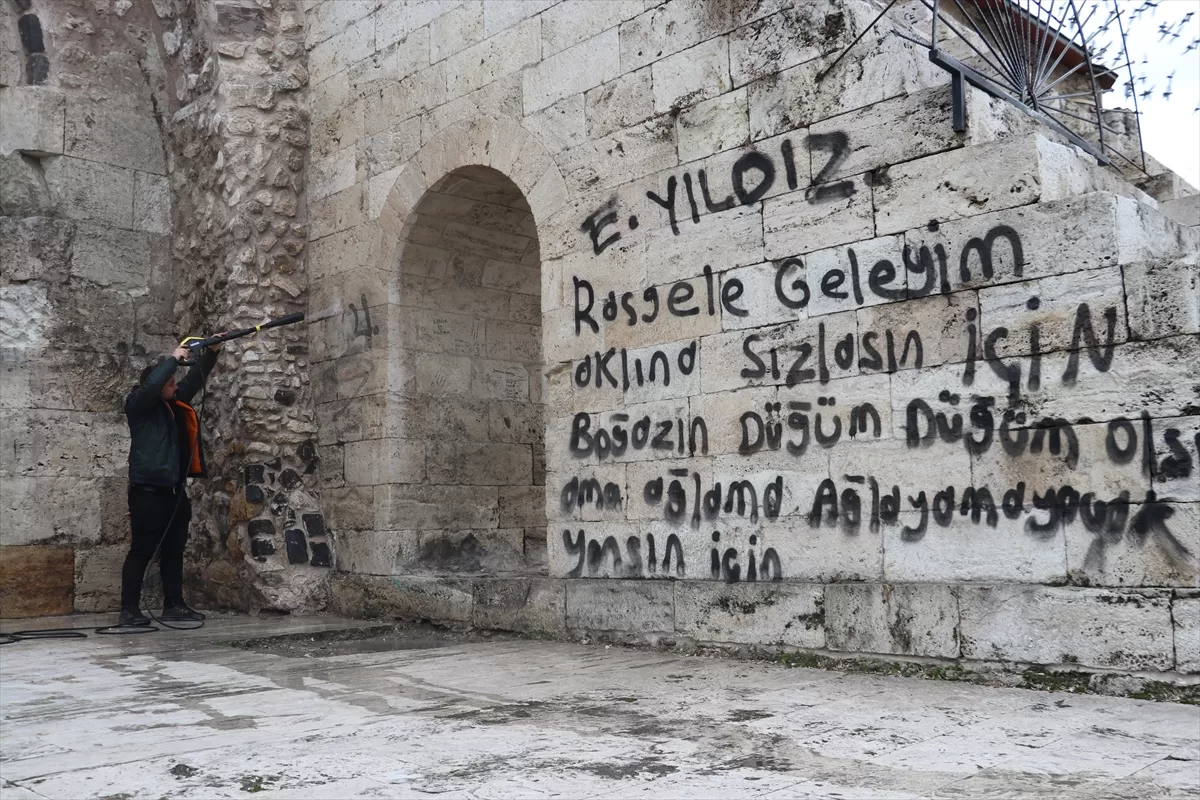 E. YILDIZ
Rasgele Geleyim
aklınd sızlasın için
Boğazin Düğüm Düğüm olsu
ama ağlamd Ağlayamayacak
Yansın için
4.